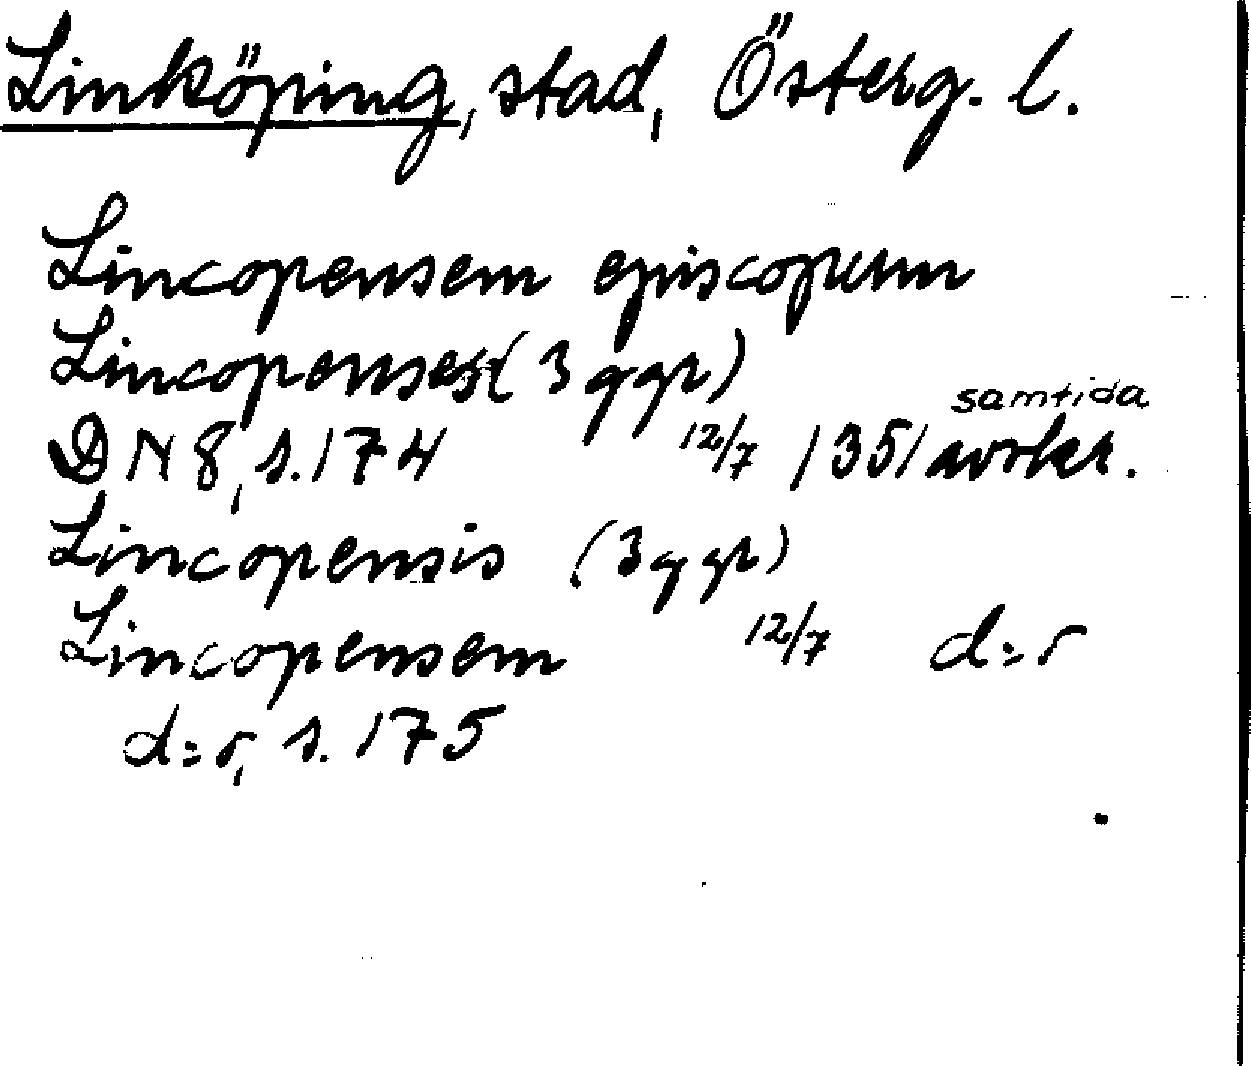 Linköping, stad, Österg. l.
Lincopensem episcopum
Lincopenses (3 ggr)
samtida
DN 8, s. 174 12/7 1351 avskr.
Lincopensis (3 ggr)
Lincopensem 12/7 d:o
d:o, s. 175